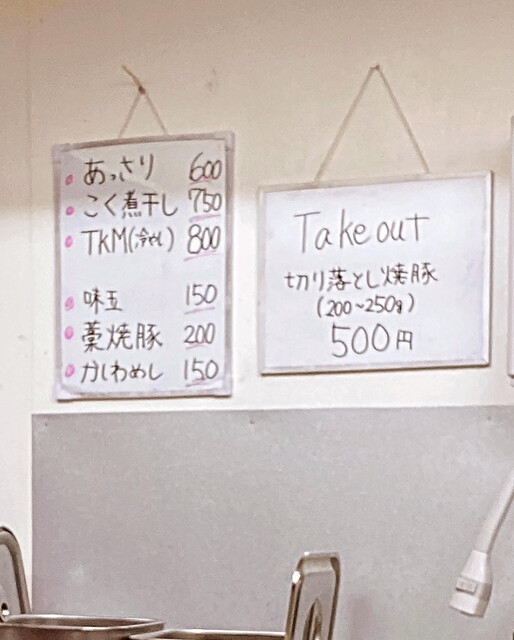 あっさり 600
こく煮干し 750
TKM(冷やし) 800
味玉 150
藁焼豚 200
かしわめし 150
Take out
切り落とし焼豚
(200~250g)
500円